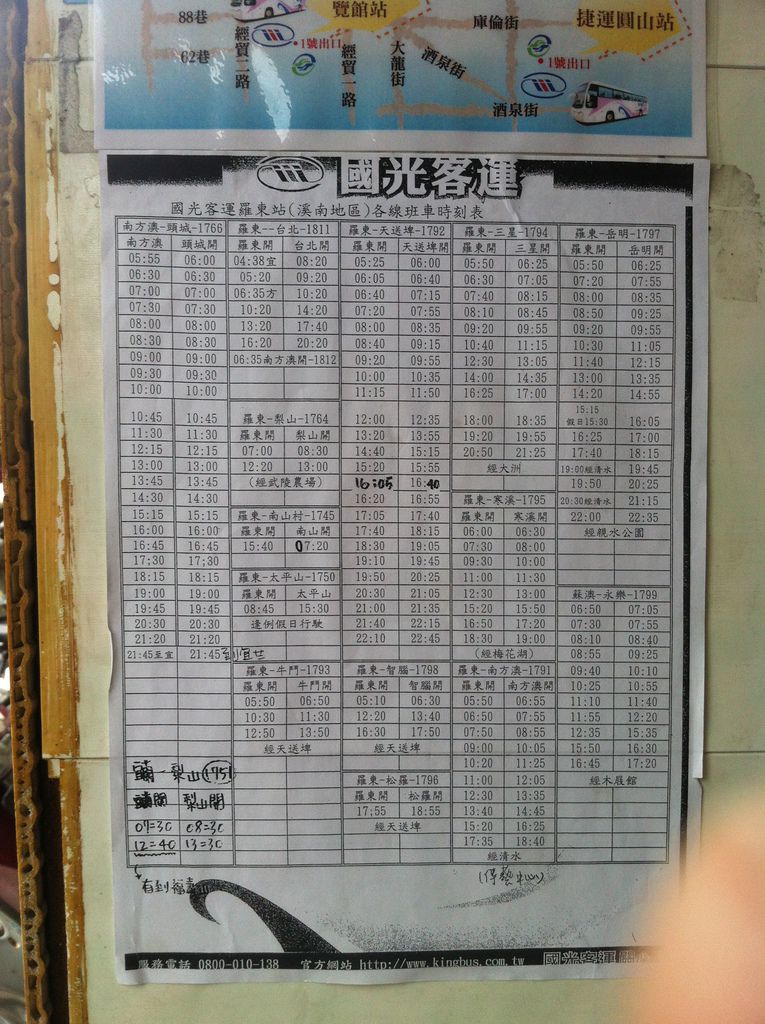 88巷
62巷
經貿二路
覽館站
1號出口
經貿一路
大龍街
酒泉街
庫倫街
捷運圓山站
1號出口
酒泉街
國光客運
國光客運羅東站(溪南地區)各線班車時刻表
南方澳-頭城-1766
南方澳 頭城開
05:55 06:00
06:30 06:30
07:00 07:00
07:30 07:30
08:00 08:00
08:30 08:30
09:00 09:00
09:30 09:30
10:00 10:00
10:45 10:45
11:30 11:30
12:15 12:15
13:00 13:00
13:45 13:45
14:30 14:30
15:15 15:15
16:00 16:00
16:45 16:45
17;30 17;30
18:15 18:15
19:00 19:00
19:45 19:45
20:30 20:30
21:20 21:20
21:45至宜 21:45到宜
梨山 1751
梨山開
07=30 08=30
12=40 13=30
有到福壽山
羅東--台北-1811
羅東開 台北開
04:38宜 08:20
05:20 09:20
06:35方 10:20
10:20 14:20
13:20 17:40
16:20 20:20
06:35南方澳開-1812
羅東-梨山-1764
羅東開 梨山開
07:00 08:30
12:20 13:00
(經武陵農場)
羅東-南山村-1745
羅東開 南山開
15:40 07:20
羅東-太平山-1750
羅東開 太平山
08:45 15:30
逢例假日行駛
羅東-牛鬥-1793
羅東開 牛鬥開
05:50 06:50
10:30 11:30
12:50 13:50
經天送埤
羅東-天送埤-1792
羅東開 天送埤開
05:25 06:00
06:05 06:40
06:40 07:15
07:20 07:55
08:00 08:35
08:40 09:15
09:20 09:55
10:00 10:35
11:15 11:50
12:00 12:35
13:20 13:55
14:40 15:15
15:20 15:55
16:05 16:40
16:20 16:55
17:05 17:40
17:40 18:15
18:30 19:05
19:10 19:45
19:50 20:25
20:30 21:05
21:00 21:35
21:40 22:15
22:10 22:45
羅東-智腦-1798
羅東開 智腦開
05:10 06:30
12:20 13:40
16:30 17:50
經天送埤
羅東-松羅-1796
羅東開 松羅開
17;55 18:55
經天送埤
羅東-三星-1794
羅東開 三星開
05:50 06:25
06:30 07:05
07:40 08:15
08:10 08:45
09:20 09:55
10:40 11:15
12:30 13:05
14:00 14:35
16:25 17:00
18:00 18:35
19:20 19:55
20:50 21:25
經大洲
羅東-寒溪-1795
羅東開 寒溪開
06:00 06:30
07:30 08:00
09:30 10:00
11:00 11:30
12:30 13:00
15:20 15:50
16:50 17:20
18:30 19:00
(經梅花湖)
羅東-南方澳-1791
羅東開 南方澳開
05:50 06:55
06:50 07:55
07:50 08:55
09:00 10:05
10:20 11:25
11:00 12:05
12:30 13:35
13:40 14:45
15:20 16:25
17:35 18:40
經清水
羅東-岳明-1797
羅東開 岳明開
05:50 06:25
07:20 07:55
08:00 08:35
08:50 09:25
09:20 09:55
10:30 11:05
11:40 12:15
13:00 13:35
14:20 14:55
15:15
假日15:30 16:05
16:25 17:00
17:40 18:15
19:00經清水 19:45
19:50 20:25
20:30經清水 21:15
22:00 22:35
經親水公園
蘇澳-永樂-1799
06:50 07:05
07:30 07:55
08:10 08:40
08:55 09:25
09:40 10:10
10:25 10:55
11:10 11:40
11:55 12:20
12:35 15:35
15:50 16:30
16:45 17:20
經木屐館
服務電話 0800-010-138 官方網站 http://www.kingbus.com.tw 國光客運關心